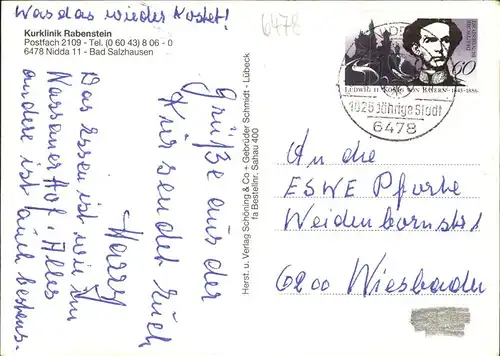 Was das wieder kostet!
6478
Kurklinik Rabenstein
Postfach 2109 - Tel. (0 60 43) 8 06 - 0
6478 Nidda 11 - Bad Salzhausen
Grüße aus der
Kur sendet Euch
Harry
Das Essen ist wie im
Nassauer Hof. Alles
andere ist auch bestens.
Herst. u. Verlag Schöning & Co + Gebrüder Schmidt - Lübeck
fa Bestellnr. Sahau 400
DEUTSCHE BUNDESPOST
60
LUDWIG II · KÖNIG VON BAYERN · 1845-1886
1025 Jährige Stadt
6478
An die
ESWE Pforte
Weidenbornstr 1
6200 Wiesbaden